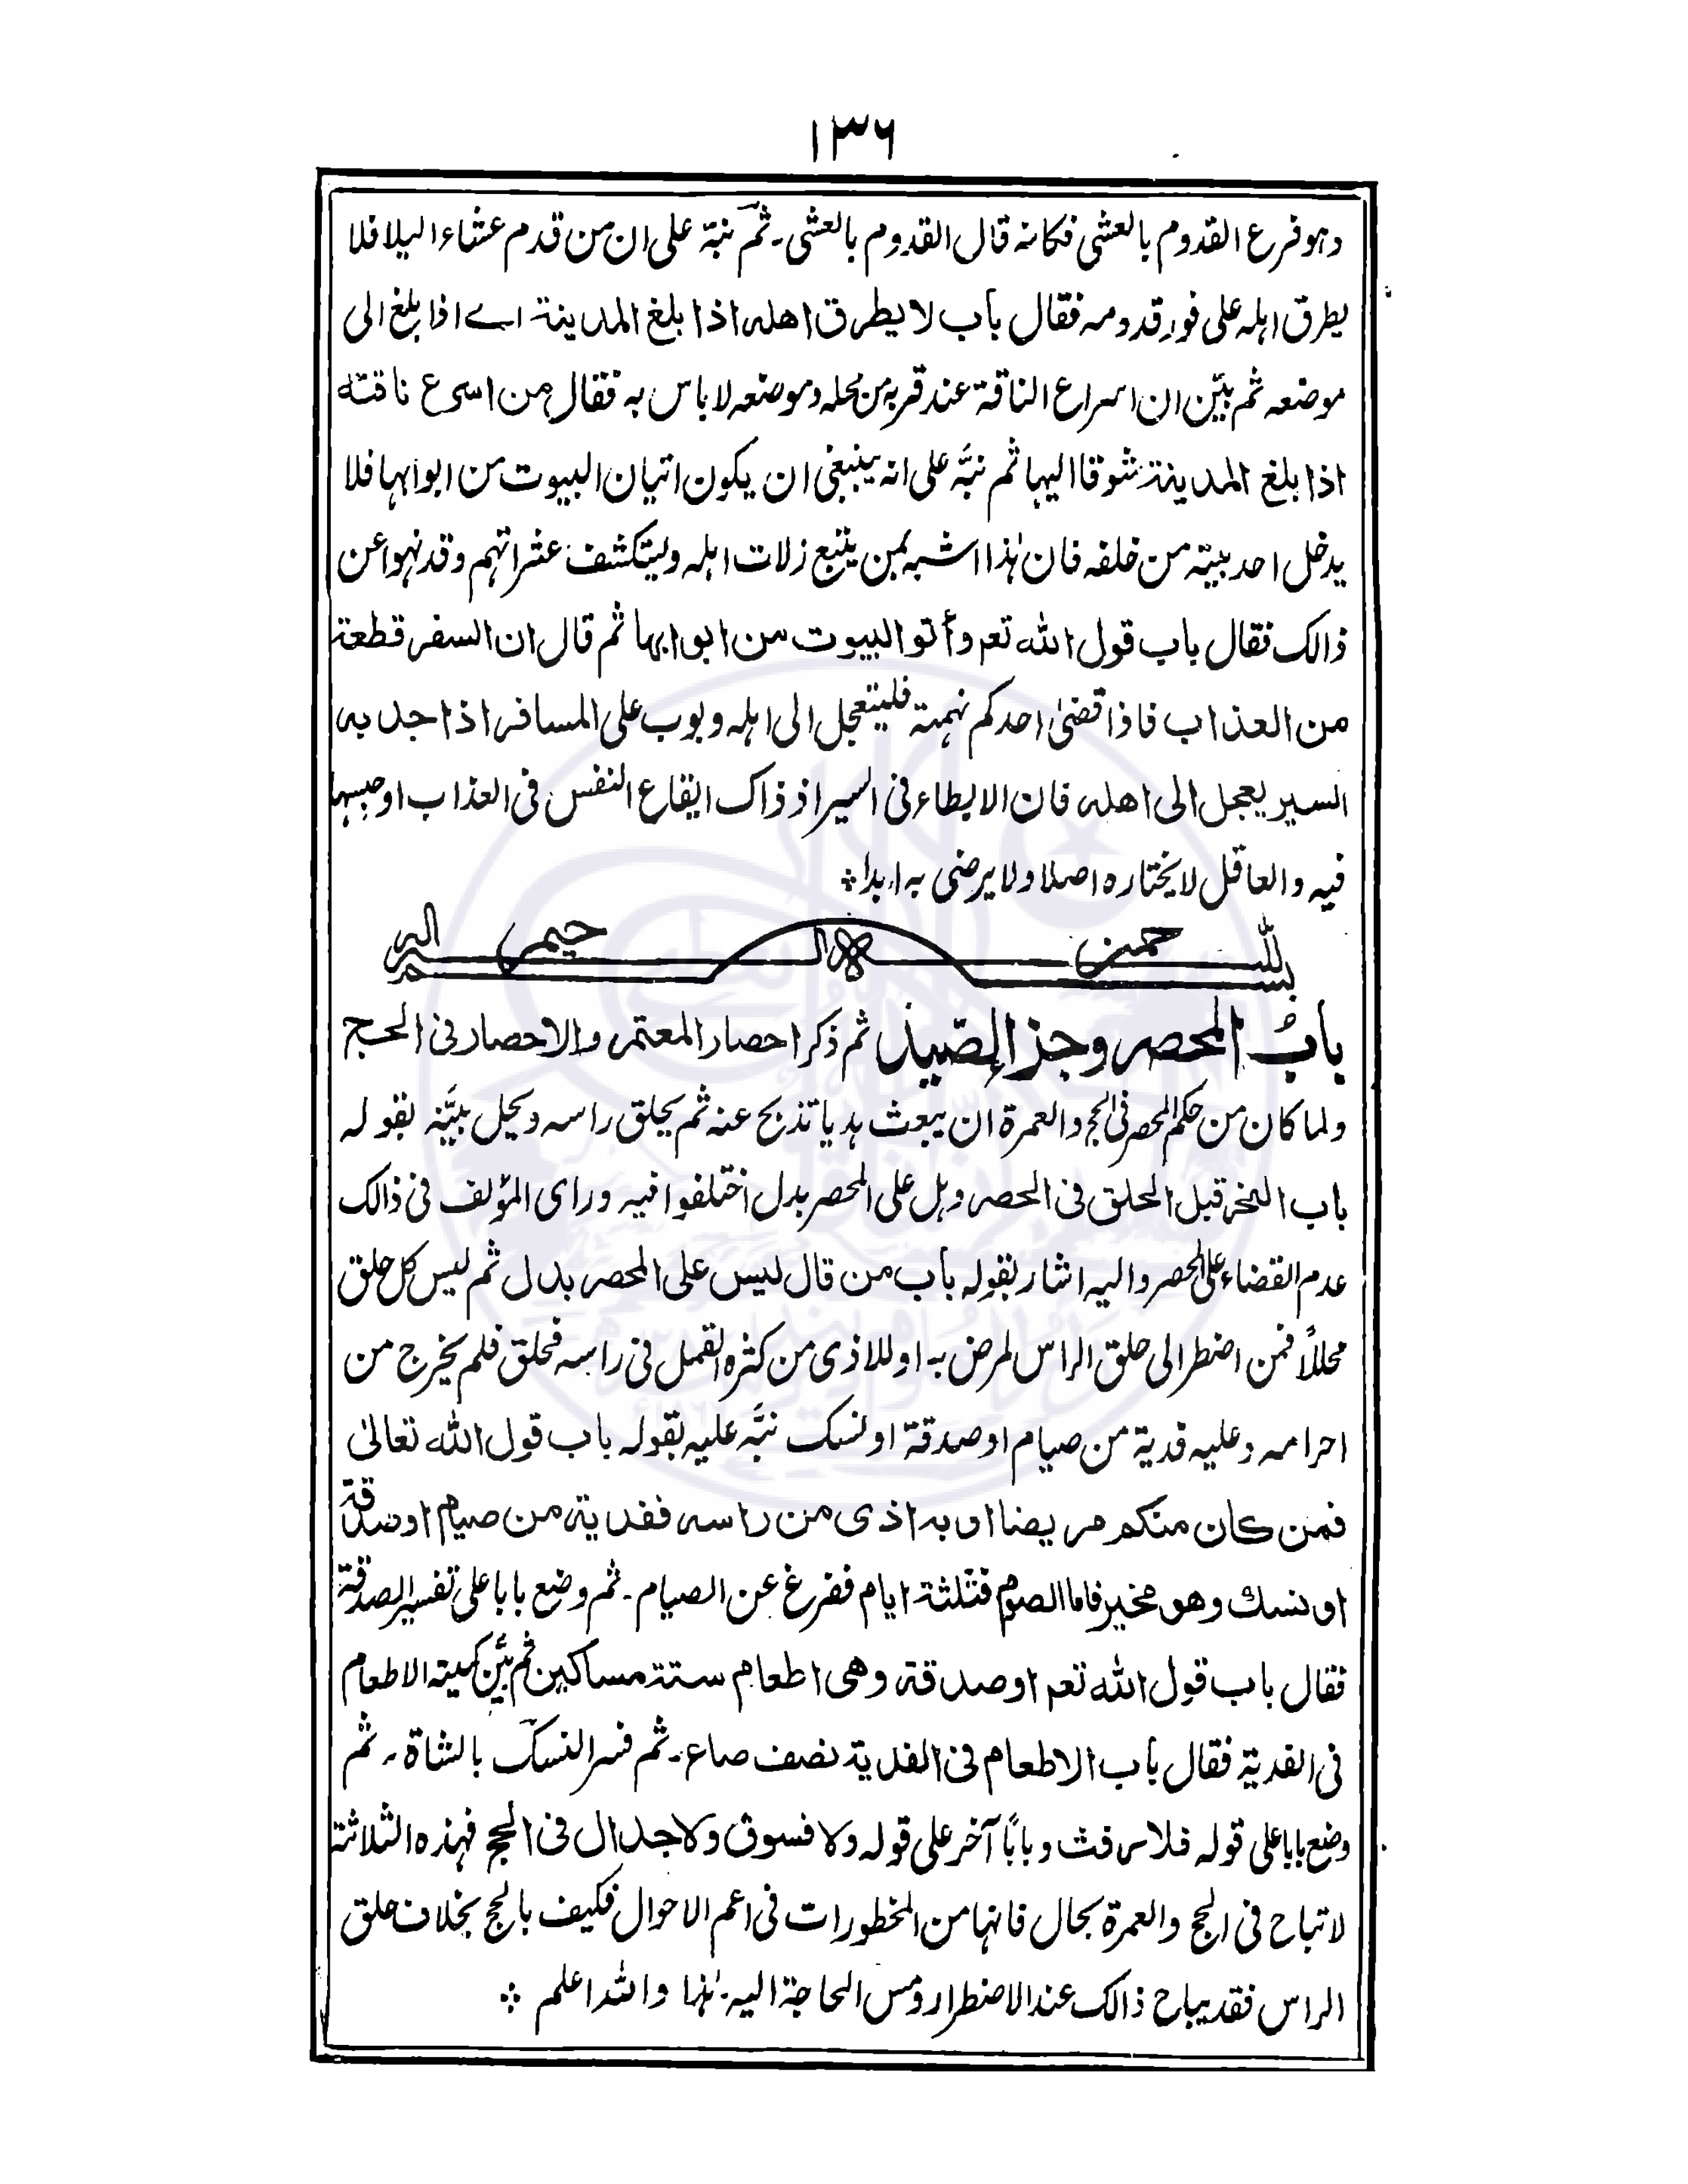 ١٣٦
وهو فرع القدوم بالعشى فكانه قال القدوم بالعشى۔ ثم نبّه على ان من قدم عشاء اليلا فلا
يطرق اہلہ على فور قدومہ فقال باب لا يطرق اهله اذا بلغ المدينة اے اذا بلغ الى
موضعہ ثم بيّن ان اسراع الناقة عند قربہ من محلہ وموضعہ لا باس بہ فقال من اسرع ناقته
اذا بلغ المدينة شوقا اليہا ثم نبّہ على انہ ينبغى ان يكون اتيان البيوت من ابوابہا فلا
يدخل احد بيتہ من خلفہ فان ہٰذا اشبہ بمن يتبع زلات اہلہ وليتكشف عثراتہم وقد نہوا عن
ذالك فقال باب قول الله تعم وأتو البيوت من ابوابہا ثم قال ان السفر قطعة
من العذاب فاذا قضىٰ احدكم نہمتہ فليتعجل الى اہلہ وبوب على المسافر اذا جد بہ
السير يعجل الى اهله فان الابطاء فى السير اذ ذاك ايقاع النفس فى العذاب او حبسہا
فيہ والعاقل لا يختارہ اصلا ولا يرضى بہ ابدا
بسم الله الرحمن الرحيم
باب المحصر وجزاء الصّيد ثم ذكر احصار المعتمر والاحصار فى الحج
ولما كان من حكم المحصر فى الحج والعمرة ان يبعث ہديا تذبح عنہ ثم يحلق راسہ ويحل بيّنہ بقولہ
باب النحر قبل الحلق فى الحصر وہل على المحصر بدل اختلفوا فيہ وراى المؤلف فى ذالك
عدم القضاء على المحصر واليہ اشار بقولہ باب من قال ليس على المحصر بدل ثم ليس كل حلق
محللاً فمن اضطر الى حلق الراس لمرض بہ او للاذى من كثرہ القمل فى راسہ فحلق فلم يخرج من
احرامہ وعليہ فدية من صيام او صدقة او نسك نبّہ عليہ بقولہ باب قول الله تعالىٰ
فمن كان منكم مريضا او بہ اذى من راسہ ففدية من صيام او صدقة
او نسك وهو مخير فاما الصوم فثلثة ايام ففرغ عن الصيام۔ ثم وضع بابا على تفسير الصدقة
فقال باب قول الله تعم او صدقة وهى اطعام ستة مساكين ثم بيّن كميتہ الاطعام
فى الفدية فقال باب الاطعام فى الفدية نصف صاع۔ ثم فسر النسك بالشاة۔ ثم
وضع بابا على قولہ فلا رفث وبابًا آخر على قولہ ولا فسوق ولا جدال فى الحج فہذہ الثلاثة
لا تباح فى الحج والعمرة بحال فانہا من المحظورات فى اعم الاحوال فكيف بالحج بخلاف حلق
الراس فقد يباح ذالك عند الاضطرار ومس الحاجة اليہ۔ ہٰذا واللہ اعلم